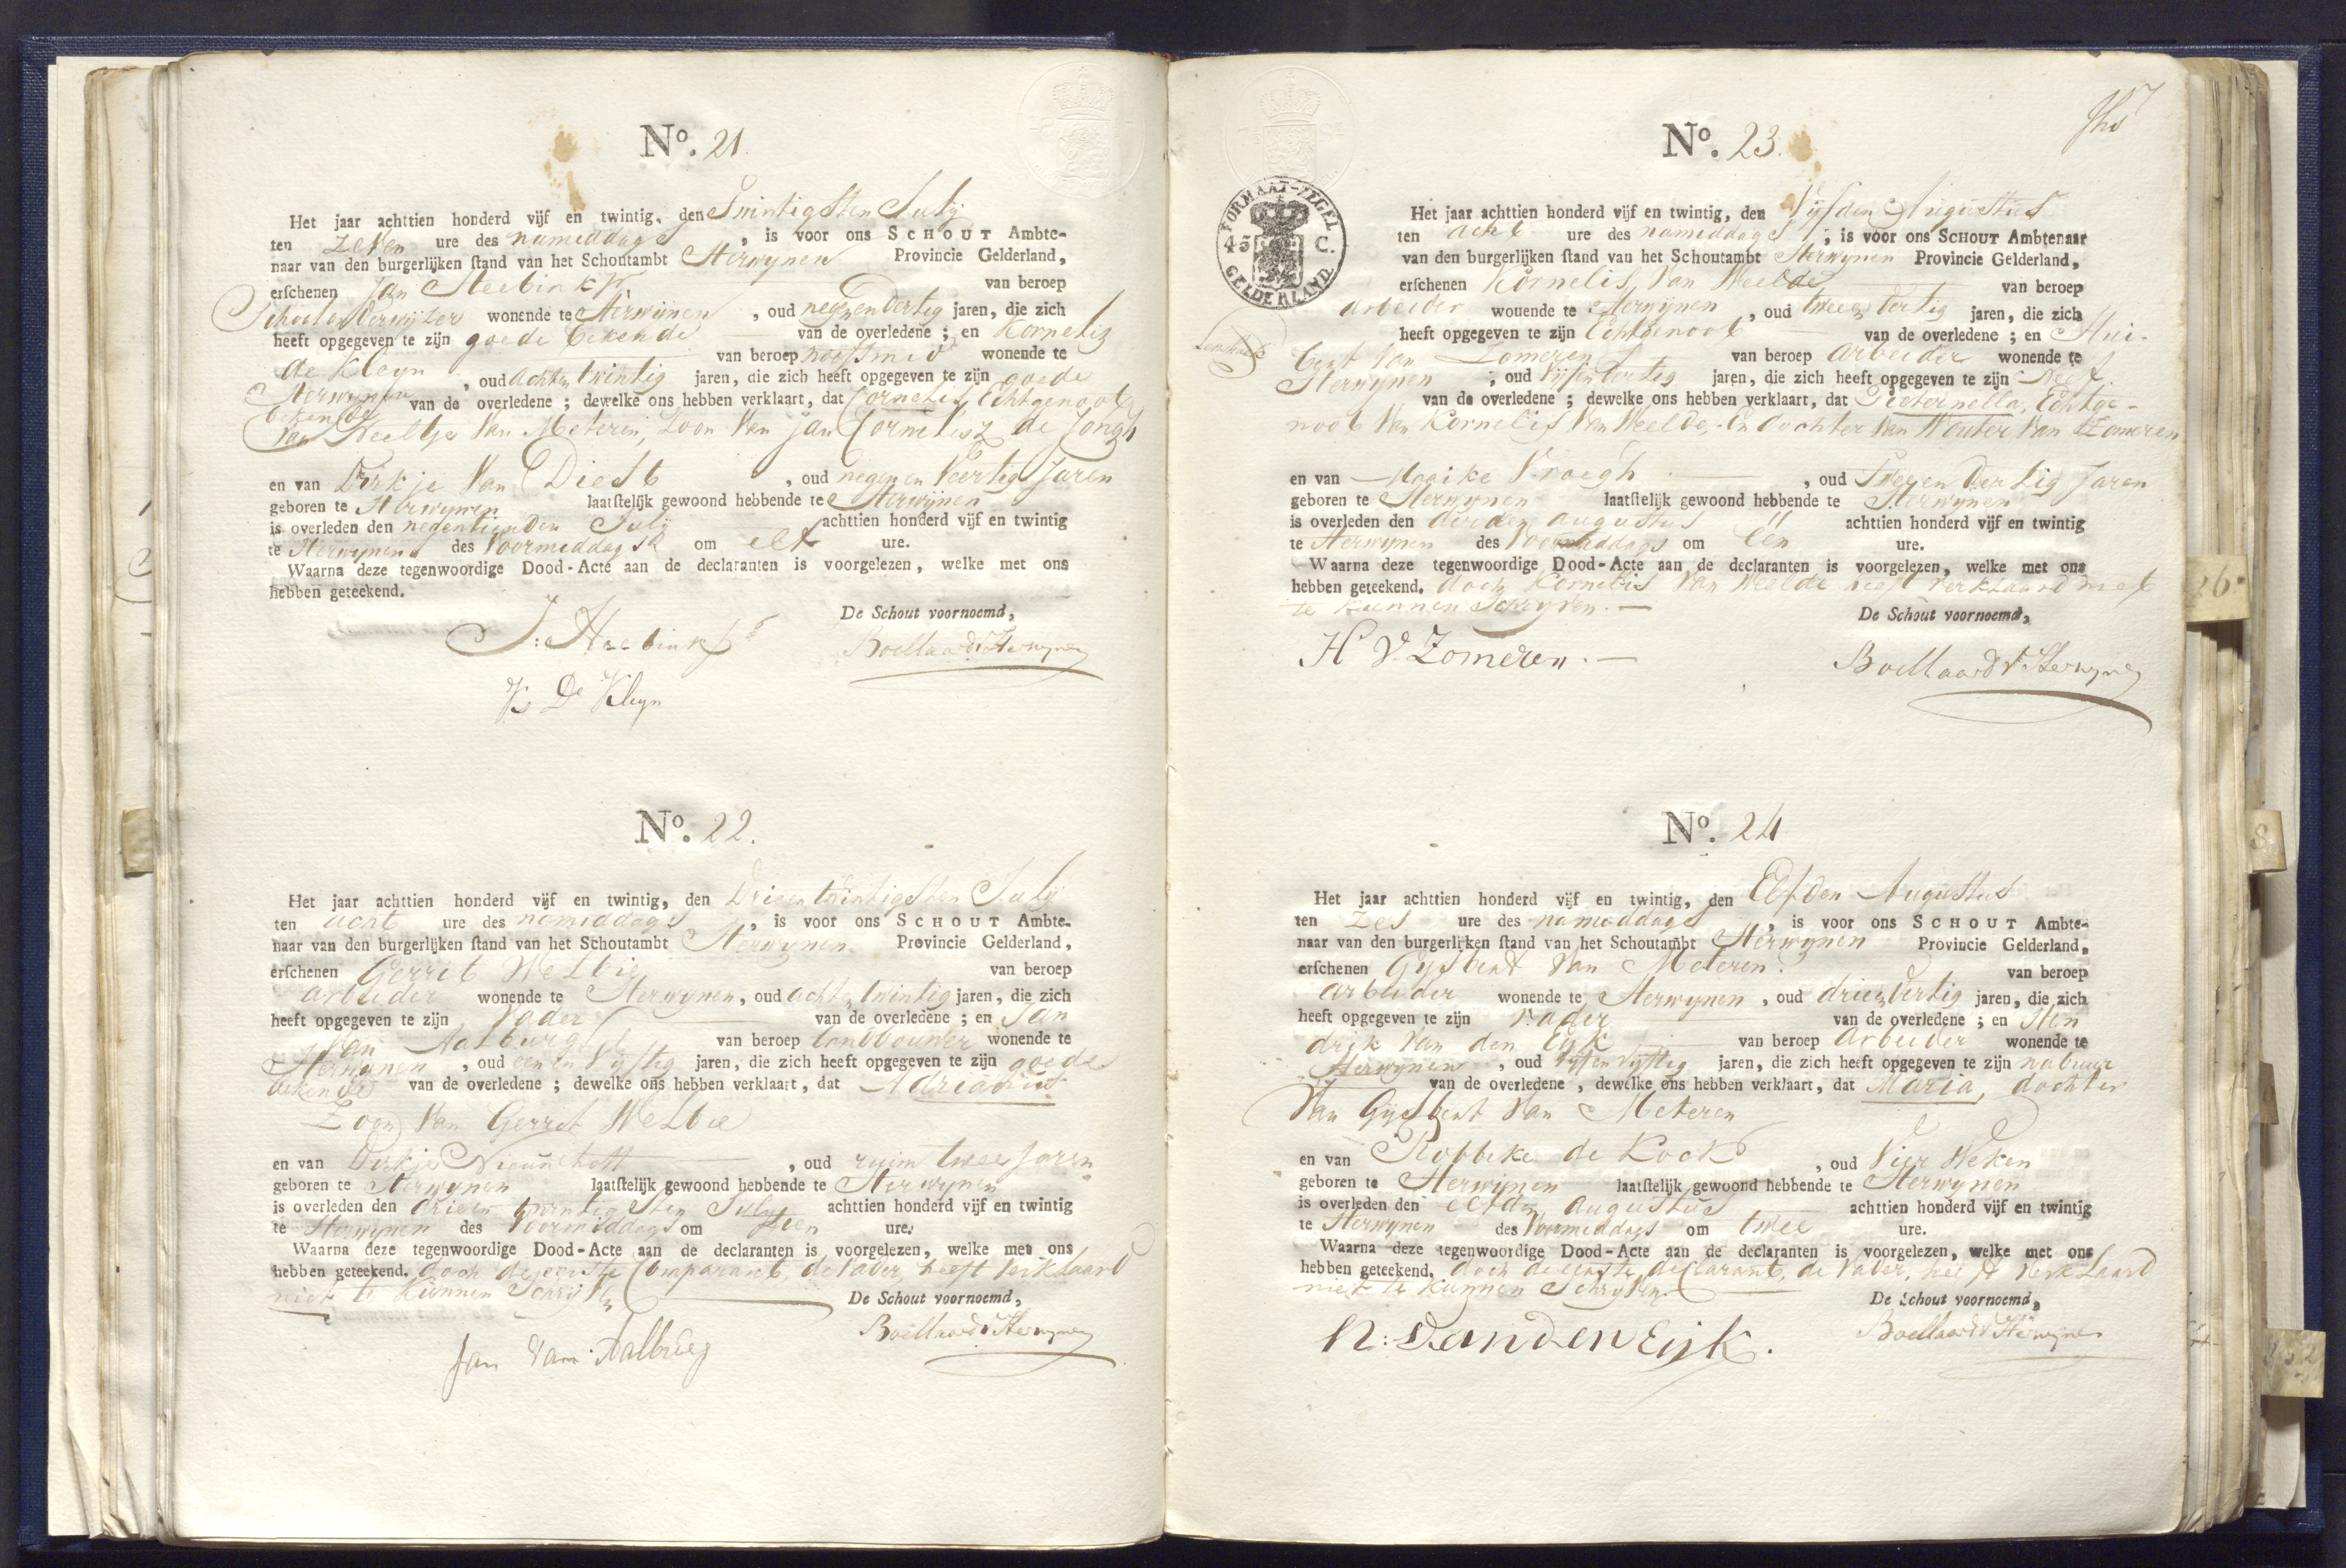 No. 21.
Het jaar achttien honderd vijf en twintig, den Twintigsten July
ten zeven ure des namiddags, is voor ons SCHOUT Ambte-
naar van den burgerlijken stand van het Schoutambt Herwynen Provincie Gelderland,
erschenen Jan van beroep
Schoolonderwyzer wonende te Herwijnen, oud negenendertig jaren, die zich
heeft opgegeven te zijn goede bekende van de overledene; en Kornelis
de Kleyn van beroep wonende te
Herwynen, oud achtentwintig jaren, die zich heeft opgegeven te zijn goede
bekende van de overledene; dewelke ons hebben verklaart, dat Cornelis, Echtgenoot
van Neeltje Van Meteren, Zoon Van Jan Cornelisz de Jongh
en van Dirkje Van Diest, oud negen en Veertig Jaren
geboren te Herwynen laatstelijk gewoond hebbende te Herwijnen
is overleden den negentienden July achttien honderd vijf en twintig
te Herwynen des Voormiddags om elf ure.
Waarna deze tegenwoordige Dood-Acte aan de declaranten is voorgelezen, welke met ons
hebben geteekend.
De Schout voornoemd,
Boellaard v Herwynen
K De Kleyn
No. 22.
Het jaar achttien honderd vijf en twintig, den Drieentwintigsten July
ten acht ure des namiddags, is voor ons SCHOUT Ambte-
naar van den burgerlijken stand van het Schoutambt Herwynen Provincie Gelderland,
erschenen Gerrit Welbie van beroep
arbeider wonende te Herwynen, oud achtentwintig jaren, die zich
heeft opgegeven te zijn Vader van de overledene; en Jan
Van Aalburg van beroep landbouwer wonende te
Herwynen, oud eenen Vyftig jaren, die zich heeft opgegeven te zijn goede
bekende van de overledene; dewelke ons hebben verklaart, dat Adrianus
Zoon Van Gerrit Welbie
en van Dirkje, oud ruim twee Jaren
geboren te Herwynen laatstelijk gewoond hebbende te Herwynen
is overleden den drieen twintigsten July achttien honderd vijf en twintig
te Herwynen des Voormiddags om tien ure.
Waarna deze tegenwoordige Dood-Acte aan de declaranten is voorgelezen, welke met ons
hebben geteekend. doch de eerste Comparant, de Vader, heeft verklaard
niet te kunnen Schryven
De Schout voornoemd,
Boellaard v Herwynen
Jan Van Aalburg
No. 23.
FORMAAT-ZEGEL
45 C.
GELDERLAND.
Het jaar achttien honderd vijf en twintig, den Vyfden Augustus
ten acht ure des namiddags, is voor ons SCHOUT Ambtenaar
van den burgerlijken stand van het Schoutambt Herwynen Provincie Gelderland,
erschenen Kornelis Van Weelde van beroep
arbeider wonende te Herwijnen, oud tweeendertig jaren, die zich
heeft opgegeven te zijn Echtgenoot van de overledene; en Hui-
bert Van Zomeren van beroep arbeider wonende te
Herwynen, oud vyfendertig jaren, die zich heeft opgegeven te zijn Neef
van de overledene; dewelke ons hebben verklaart, dat Pieternella, Echtge-
noot Van Kornelis Van Weelde, En dochter Van Wouter Van Zomeren
en van Maaike Vroegh, oud Tweeen dertig Jaren
geboren te Herwynen laatstelijk gewoond hebbende te Herwynen
is overleden den derden augustus achttien honderd vijf en twintig
te Herwynen des Voormiddags om Een ure.
Waarna deze tegenwoordige Dood-Acte aan de declaranten is voorgelezen, welke met ons
hebben geteekend. doch Kornelis Van Weelde heeft verklaard niet
te kunnen Schryven.
De Schout voornoemd,
H V. Zomeren.
Boellaard v Herwynen
No. 24
Het jaar achttien honderd vijf en twintig, den Elfden Augustus
ten zes ure des namiddags, is voor ons SCHOUT Ambte-
naar van den burgerlijken stand van het Schoutambt Herwynen Provincie Gelderland,
erschenen Gysbert Van Meteren. van beroep
arbeider wonende te Herwynen, oud drieendertig jaren, die zich
heeft opgegeven te zijn Vader van de overledene; en Hen
drik Van den Eyk van beroep arbeider wonende te
Herwynen, oud vyfenvyftig jaren, die zich heeft opgegeven te zijn nabuur
van de overledene, dewelke ons hebben verklaart, dat Maria, dochter
Van Gijsbert Van Meteren
en van Robbeke de Kock, oud Vier Weken
geboren te Herwijnen laatstelijk gewoond hebbende te Herwynen
is overleden den elfden augustus achttien honderd vijf en twintig
te Herwynen des Voormiddags om twee ure.
Waarna deze tegenwoordige Dood-Acte aan de declaranten is voorgelezen, welke met ons
hebben geteekend. doch de eerste declarant, de Vader, heeft verklaard
niet te kunnen Schryven.
De Schout voornoemd,
Boellaard v Herwynen
H: vanden Eijk.